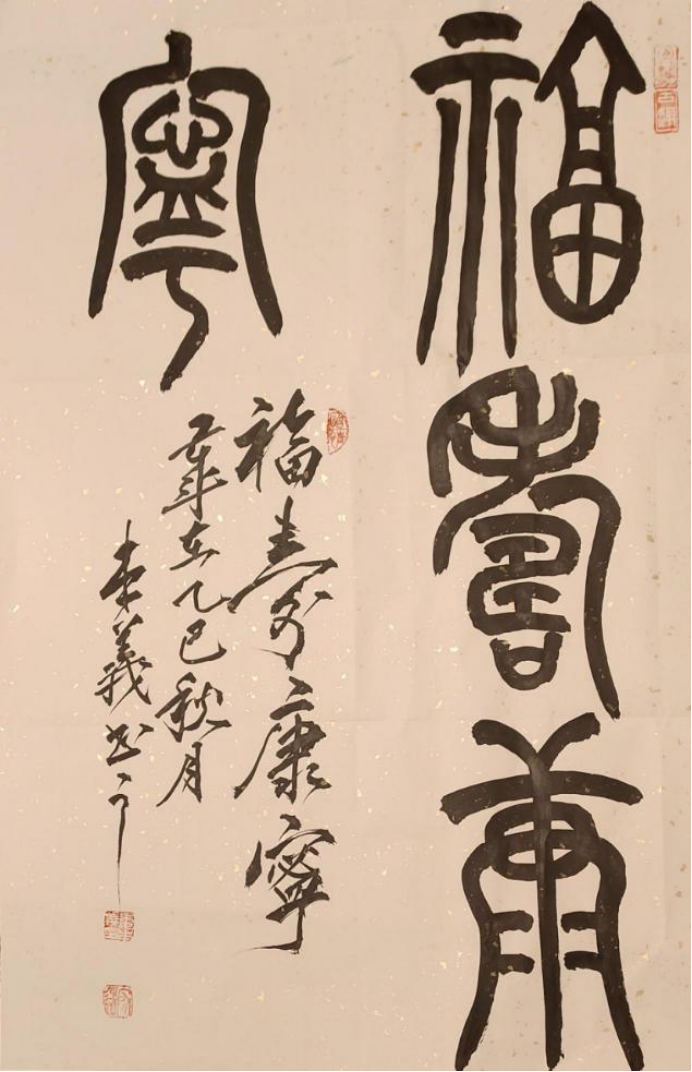 福壽康
寧
福壽康寧
歲在乙巳秋月
義书